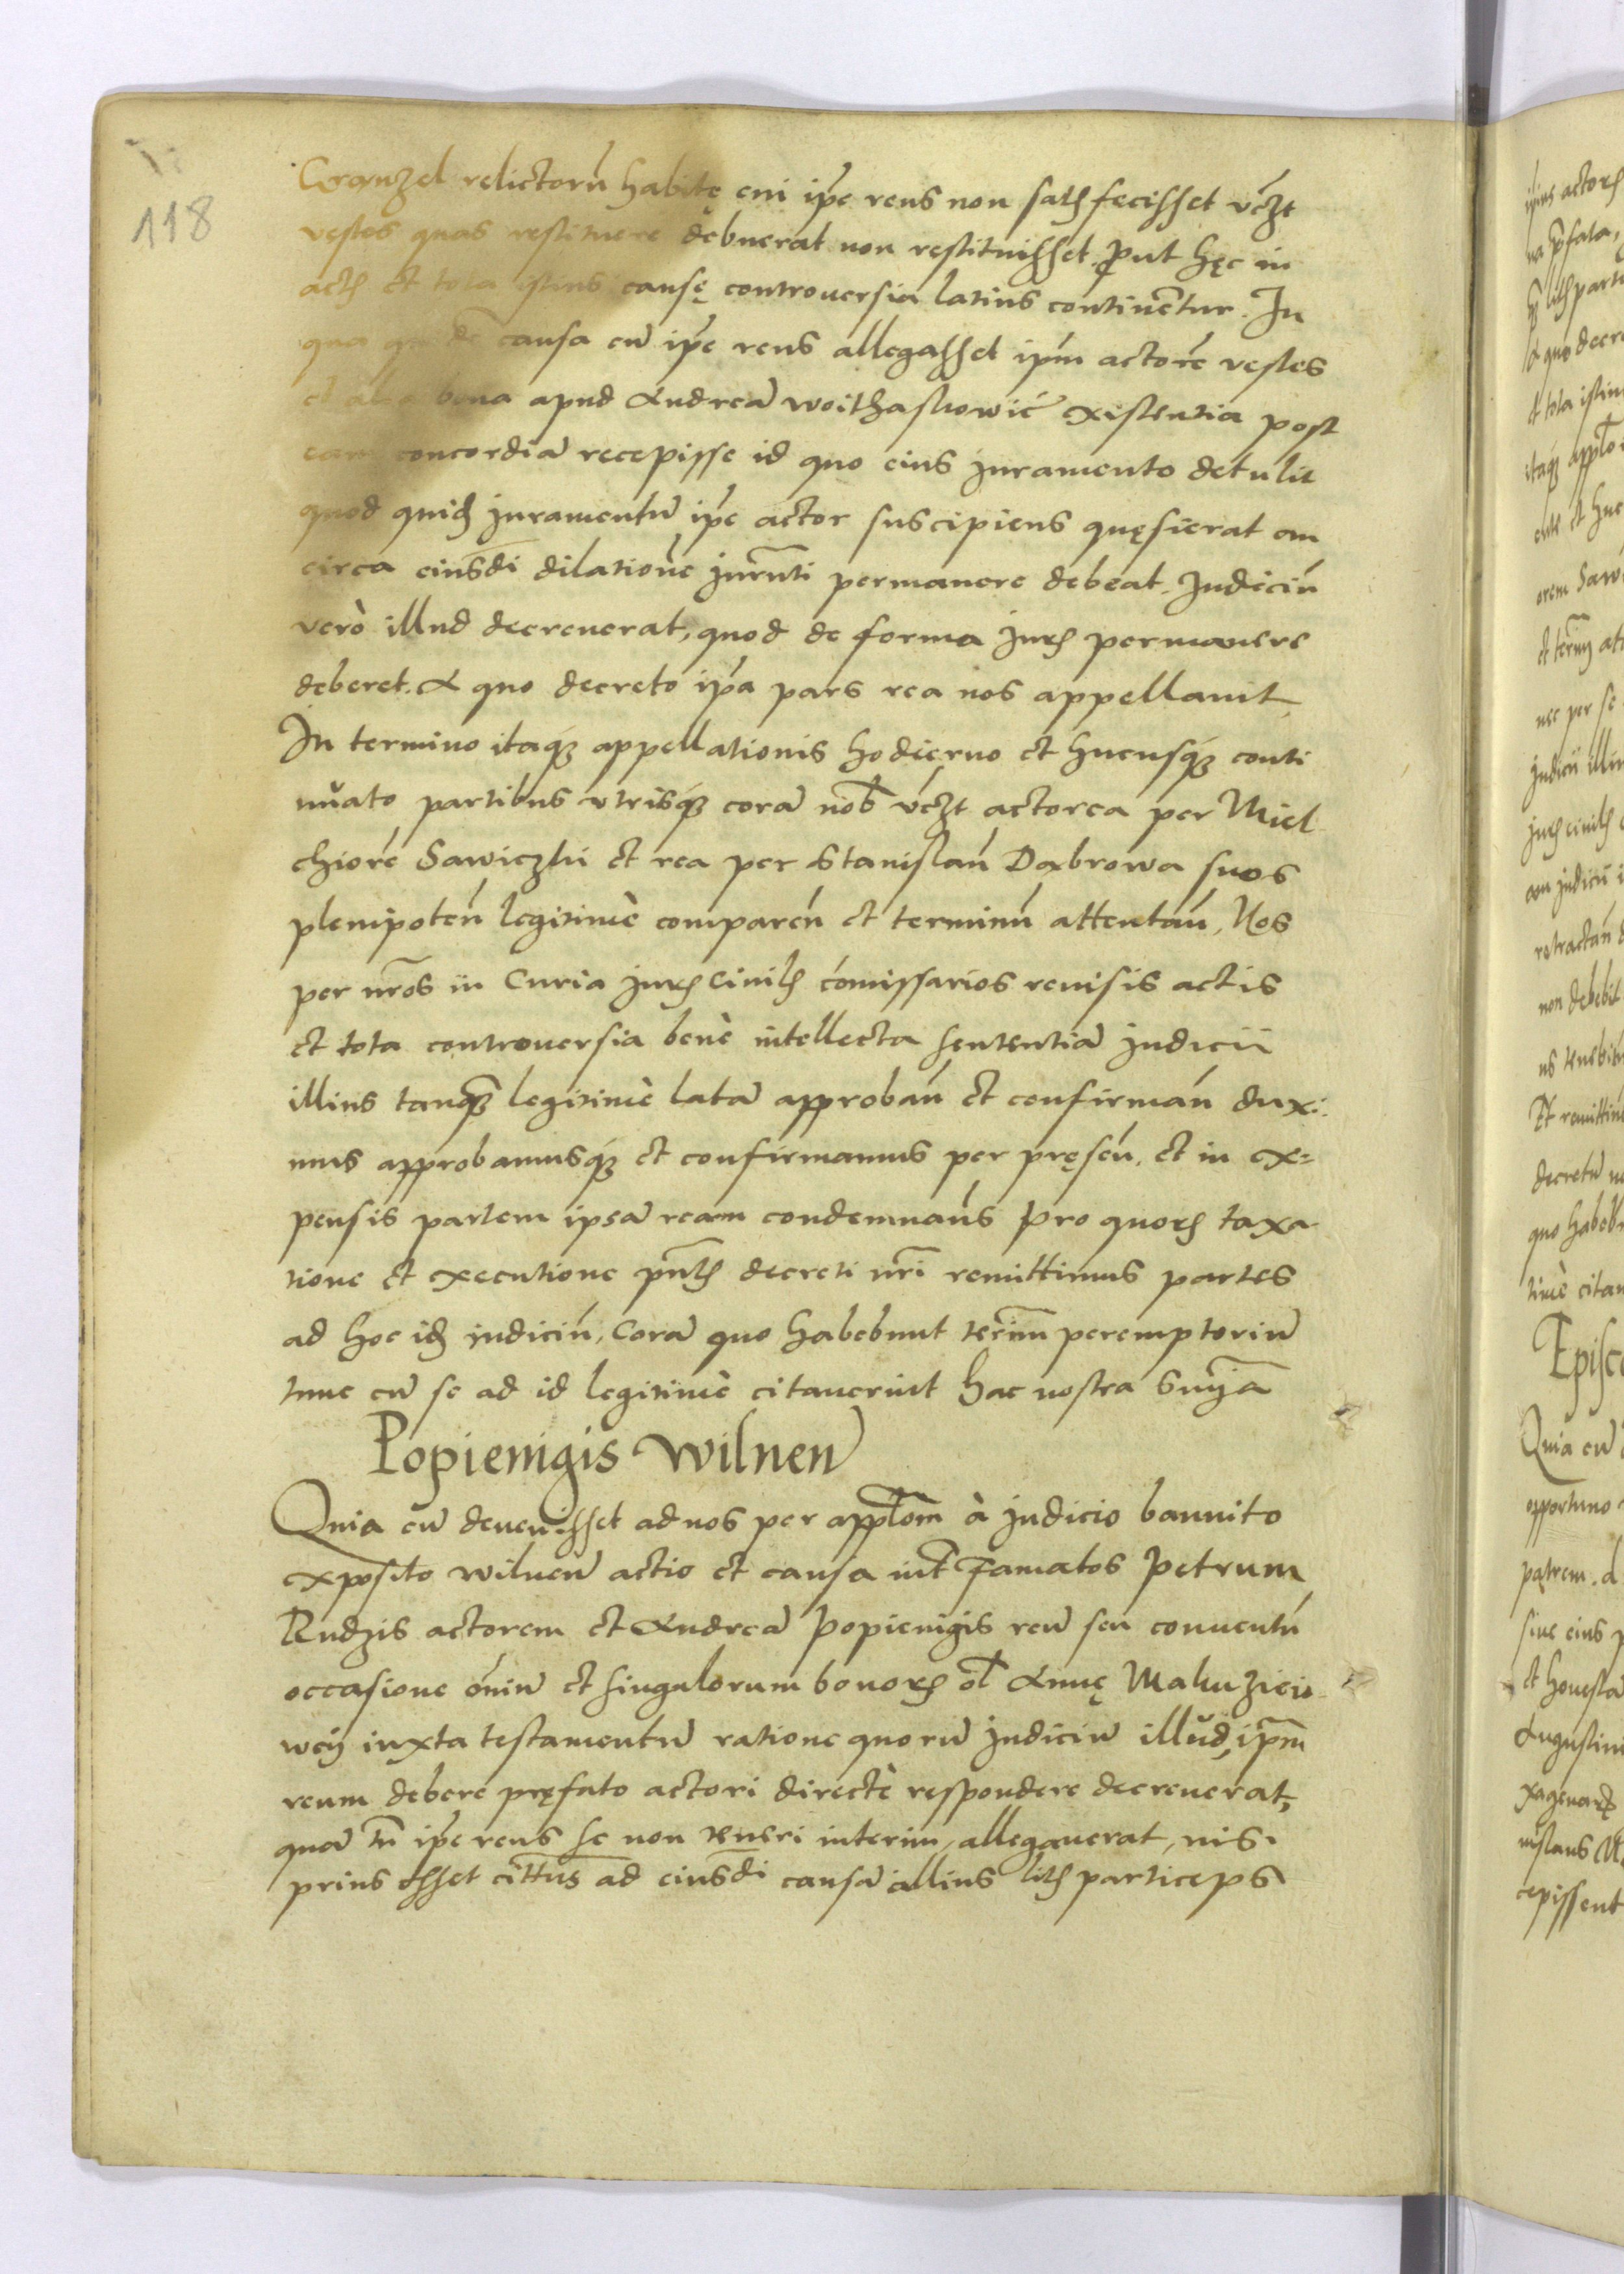 118
Cranzel relictorũ habitę cui ip̃e reus non satis fecisset vczt
vestes quas restituere debuerat non restituisset. Put hęc in
actis et tota istius causę controuersia latius continẽtur. In
qua quidẽ causa cũ ip̃e reus allegasset ip̃m actorẽ vestes
et alia bona apud Andreã Woithaskowić existentia post
eam concordiã recepisse id quo eius juramento detulit
quod quid juramentũ ip̃e actor suscipiens quęsierat an
circa eiusdi dilationẽ jurm̃ti permanere debeat. Judiciũ
verò illud decreuerat, quod de forma juris permanere
deberet. A quo decreto ip̃a pars rea nos appellauit
In termino itaq́ʒ appellationis hodierno et hucusq́ʒ conti
nuato partibus vtrisq́ʒ corã nob̃ vczt actorea per Miel
chiorẽ Sawiczki et rea per Stanislaũ Dąbrowa suos
plenipoteñ legitimè compareñ et terminũ attentañ, Nos
per nr̃os in Curia juris Ciuilis com̃issarios reuisis actis
et tota controuersia benè intellecta sententiã judicii
illius tanq̃ʒ legitimè latã approbañ et confirmañ duxi
mus approbamusq́ʒ et confirmamus per pręseñ. et in ex=
pensis partem ipsã ream condemnañs pro quorʒ taxa
tione et executione pñtis decreti nr̃i remittimus partes
ad hoc id judiciũ, Corã quo habebunt term̃m peremptoriũ
tunc cũ se ad id legitimè citauerint hac nostra sñtia
Popienigis Wilnen̄
Quia cũ deuenisset ad nos per appl̃om à judicio bannito
exposito wilneñ actio et causa int̃ Famatos Petrum
Rudzis actorem et Andreã Popienigis reũ seu conuentũ
occasione om̃iũ et singulorum bonorʒ ol̃ Annę Makuzicio
weij iuxta testamentũ ratione quorũ judiciũ illud, ip̃m
reum debere pręfato actori directè respondere decreuerat,
quã tñ ip̃e reus se non teneri interim, allegauerat, nisi
prius esset cittus ad eiusdi causã illius litis particeps